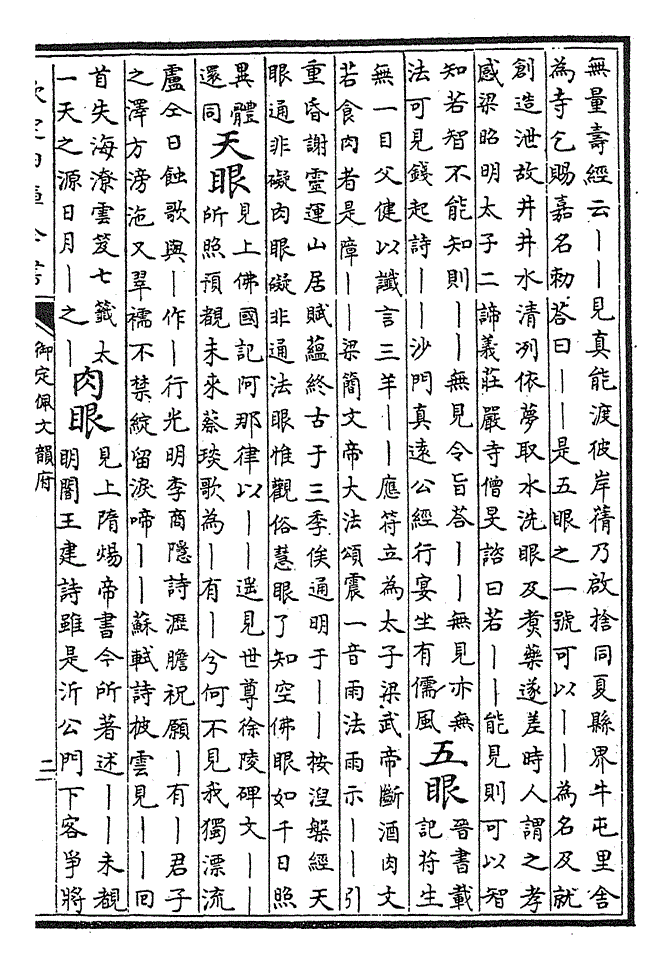 無量壽經云||見真能渡彼岸蒨乃啟捨同夏縣界牛屯里舍
為寺乞賜嘉名勅荅曰||是五眼之一號可以||為名及就
創造泄故井井水清冽依夢取水洗眼及煑藥遂差時人謂之孝
感梁昭明太子二諦義莊嚴寺僧旻諮曰若||能見則可以智
知若智不能知則||無見令旨荅||無見亦無
法可見錢起詩||沙門真遠公經行宴坐有儒風
五眼
晉書載
記苻生
無一目父健以讖言三羊||應符立為太子梁武帝斷酒肉文
若食肉者是障||梁簡文帝大法頌震一音雨法雨示||引
重昏謝靈運山居賦蘊終古于三季俟通明于||按涅槃經天
眼通非礙肉眼礙非通法眼惟觀俗慧眼了知空佛眼如千日照
異體
還同
天眼
見上佛國記阿那律以||遥見世尊徐陵碑文||
所照預覩未來蔡琰歌為|有|兮何不見我獨漂流
盧仝日蝕歌與|作|行光明李商隱詩瀝膽祝願|有|君子
之澤方滂沲又翠襦不禁綻留淚啼||蘇軾詩披雲見||回
首失海潦雲笈七籤太
一天之源日月|之|
肉眼
見上隋煬帝書今所著述||未覩
明闇王建詩雖是沂公門下客爭將
御定佩文韻府
二